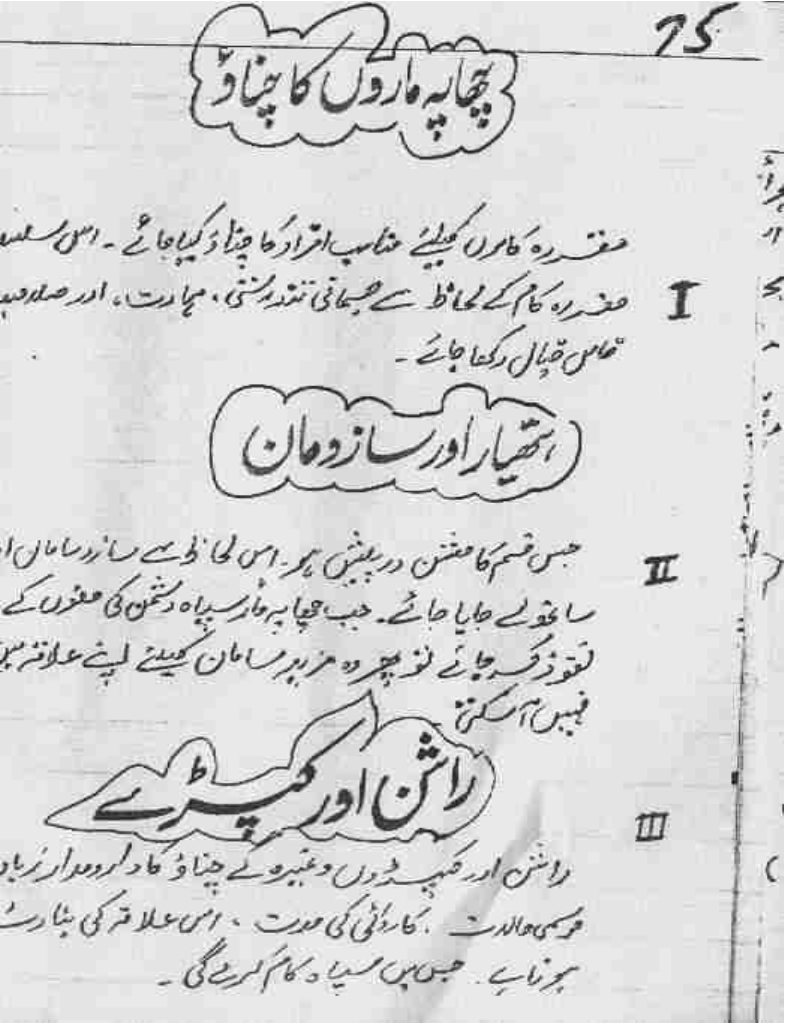 75
چھاپہ ماروں کا چناؤ
مقررہ کاموں کیلئے مناسب افراد کا چناؤ کیا جائے ۔ اس سلسلہ
I
مقررہ کام کے لحاظ سے جسمانی تندرستی ، مہارت ، اور
خاص خیال رکھا جائے ۔
ہتھیار اور سازومان
جس قسم کا مشن درپیش ہو ۔ اس لحاظ سے سازوسامان
II
ساتھ لے جایا جائے ۔ جب چھاپہ مار سپاہ دشمن کی صفوں کے
نفوذ کر جائے تو پھر وہ مزید سامان کیلئے اپنے علاقہ میں
نہیں آ سکتی ۔
راشن اور کپڑے
III
راشن اور کپڑوں وغیرہ کے چناؤ کا دارومدار
موسمی حالات ، کاروائی کی مدت ، اس علاقہ کی
ہوتا ہے جس میں سپاہ کام کرے گی ۔